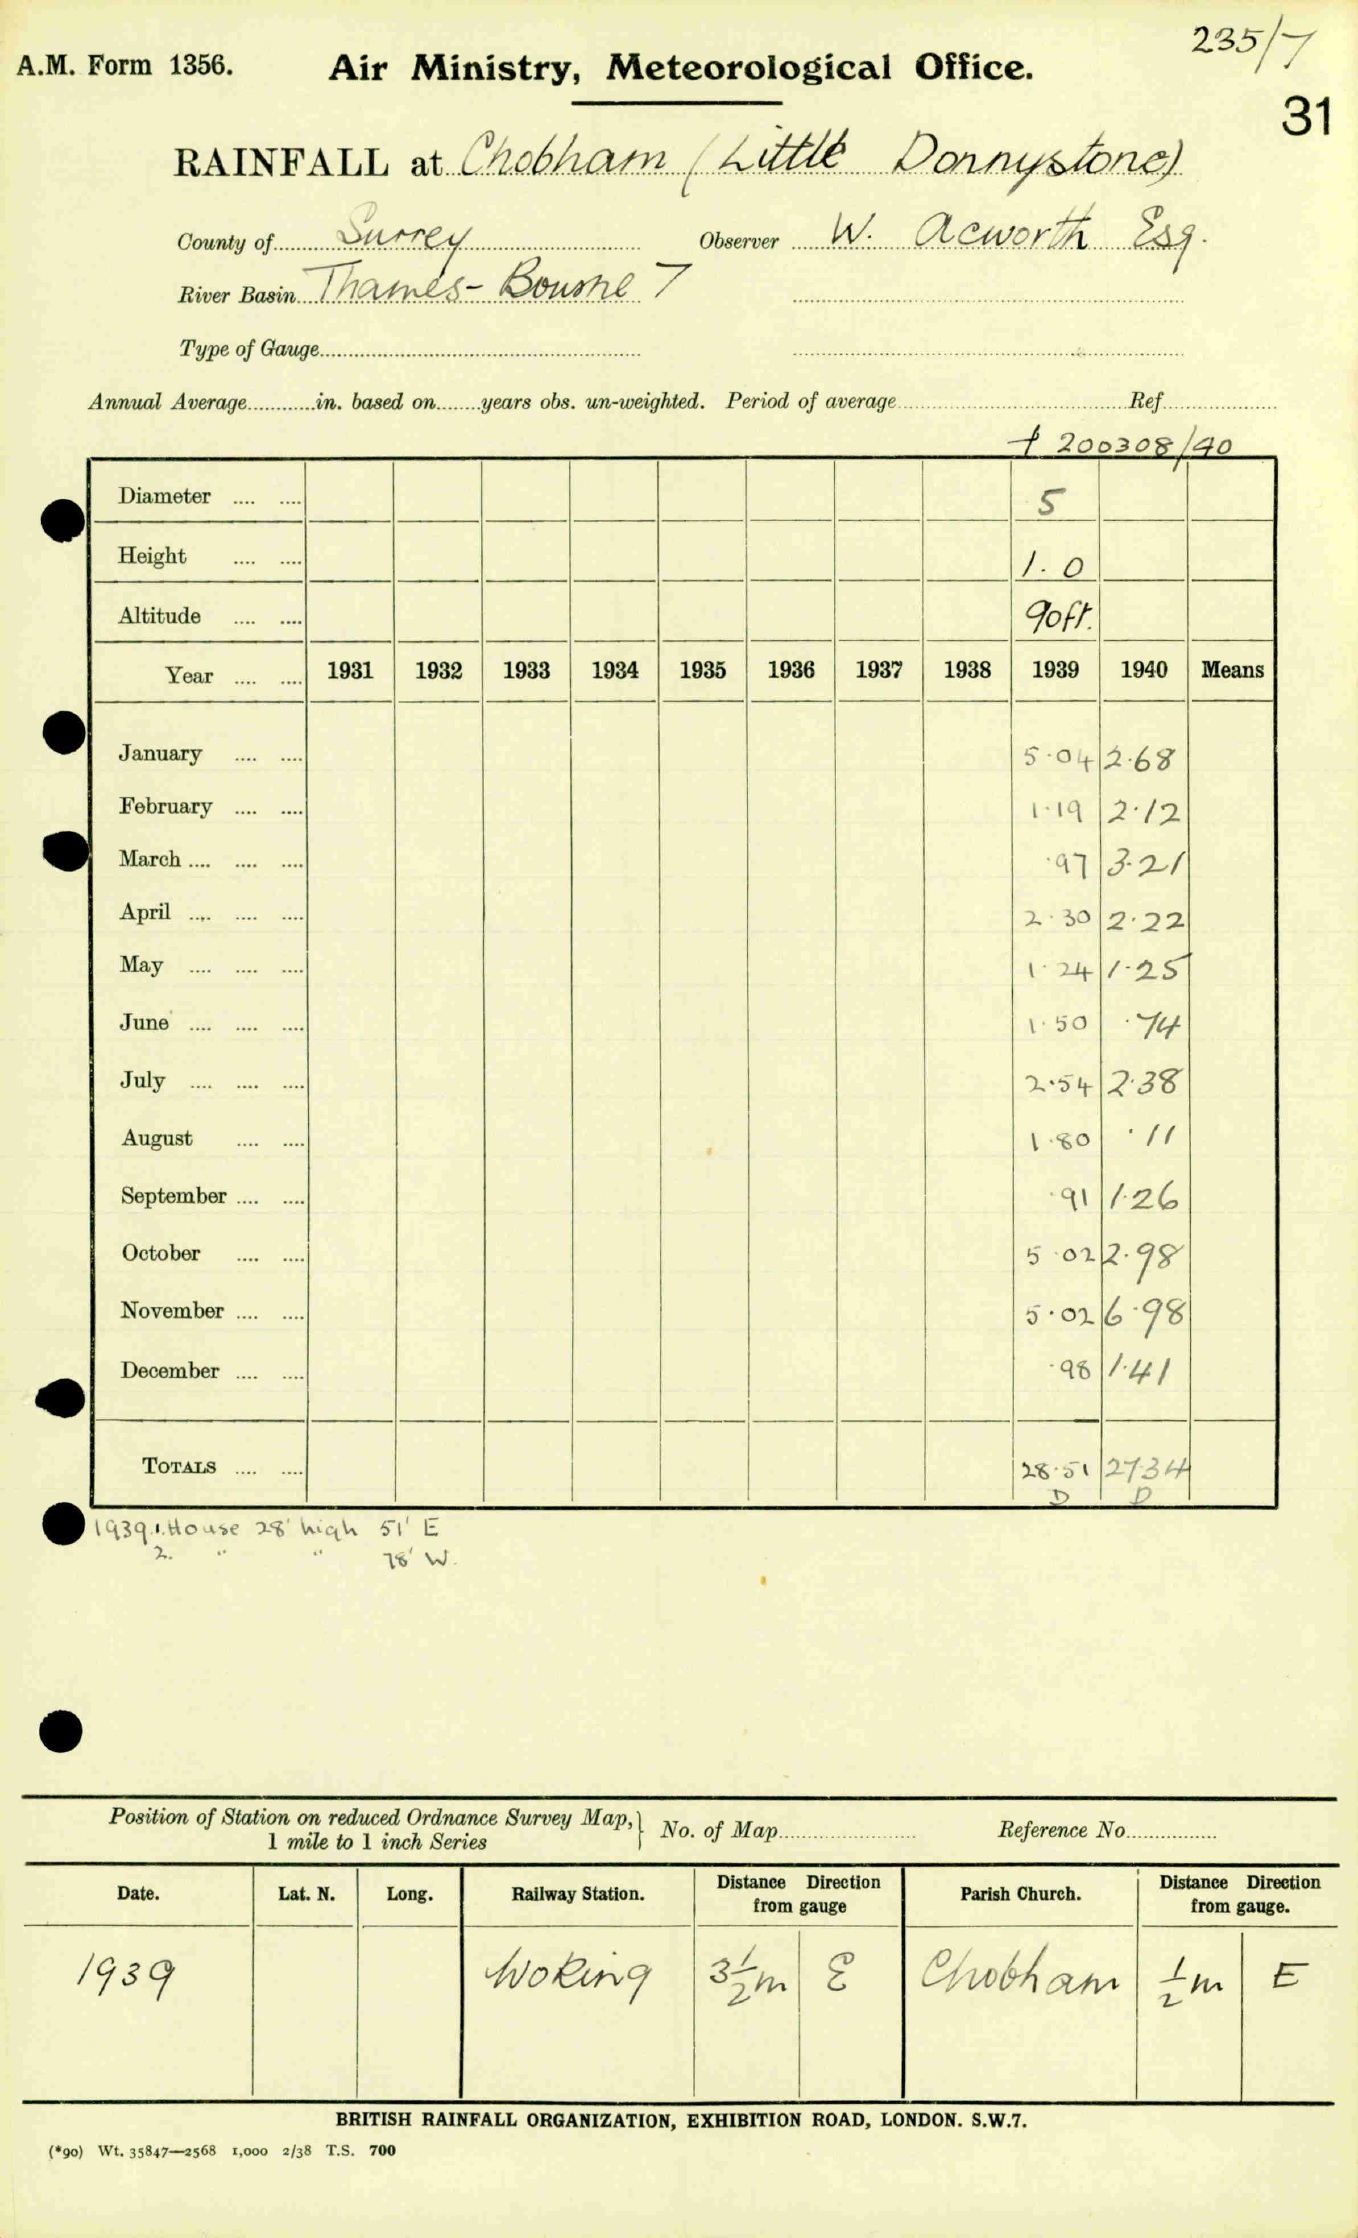 235/7
A.M. Form 1356. Air Ministry, Meteorological Office.
31
RAINFALL at Chobham (Little Donnystone)
County of Surrey Observer W. Acworth Esq.
River Basin Thames - Bourne 7
Type of Gauge
Annual Average in. based on years obs. un-weighted. Period of average Ref.
200308/40
Diameter 5
Height 1.0
Altitude 90ft.
Year 1931 1932 1933 1934 1935 1936 1937 1938 1939 1940 Means
January 5.04 2.68
February 1.19 2.12
March .97 3.21
April 2.30 2.22
May 1.24 1.25
June 1.50 .74
July 2.54 2.38
August 1.80 .11
September .91 1.26
October 5.02 2.98
November 5.02 6.98
December .98 1.41
TOTALS 28.51 27.34
D D
1939 1. House 28' high 51' E
2. " " 78' W.
Position of Station on reduced Ordnance Survey Map, } No. of Map Reference No.
1 mile to 1 inch Series
Date. Lat. N. Long. Railway Station. Distance Direction from gauge Parish Church. Distance Direction from gauge.
1939 Woking 3½m E Chobham ½m E
BRITISH RAINFALL ORGANIZATION, EXHIBITION ROAD, LONDON. S.W.7.
(*90) Wt. 35847—2568 1,000 2/38 T.S. 700